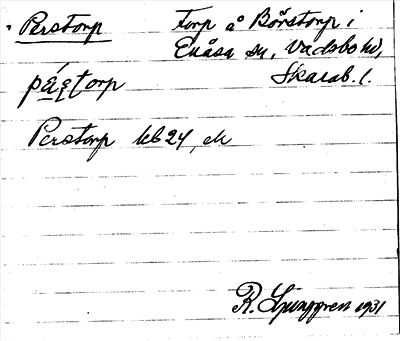 Perstorp Torp å Börstorp i
Enåsa sn, Vadsbo hd,
pæ̀ʂtorp Skarab. l.
Perstorp kb 24, ek
R. Ljunggren 1931